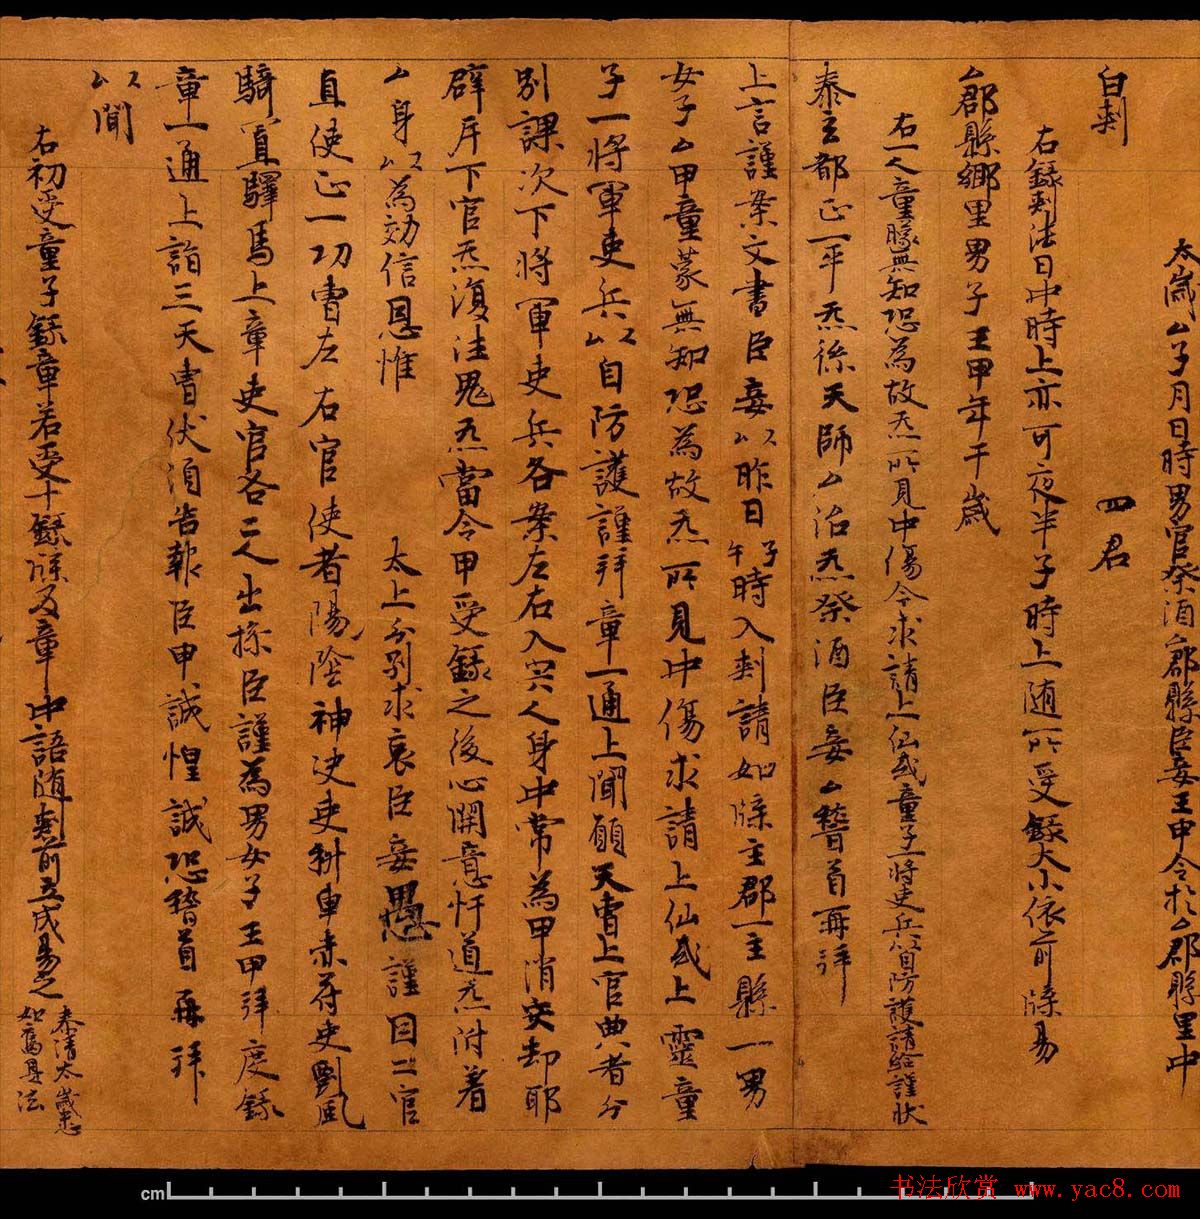 太歲厶子月日時男官祭酒厶郡縣臣妾王甲令於厶郡縣里中
白剌
四君
右錄剌法日中時上亦可夜半子時上随所受錄大小依前牒易
厶郡縣鄉里男子王甲年干歲
右一人童矇無知恐為故炁所見中傷今求請上仙或童子一將吏兵以自防護請給謹狀
泰玄都正一平炁係天師厶治炁祭酒臣妾厶稽首再拜
上言謹案文書臣妾以昨日午子時入剌請如牒主郡一主縣一男
女子厶甲童蒙無知恐為故炁所見中傷求請上仙或上靈童
子一將軍吏兵以自防護謹拜章一通上聞願天曹上官典者分
別課次下將軍吏兵各案左右入穴人身中常為甲消灾却耶
辟斥下官炁復注鬼炁當令甲受錄之後心開意忓道炁附着
厶身以為効信恩惟
太上分別求哀臣妾愚謹因二官
直使正一功曹左右官使者陽陰神决吏科車赤苻吏罡風
騎置驛馬上章吏官各二人出操臣謹為男女子王甲拜度錄
章一通上詣三天曹伏須告報臣甲誠惶誠恐稽首再拜
以聞
右初受童子錄章若受十錄牒及章中語随剌前立成易之
泰清太歲悉
如舊具法